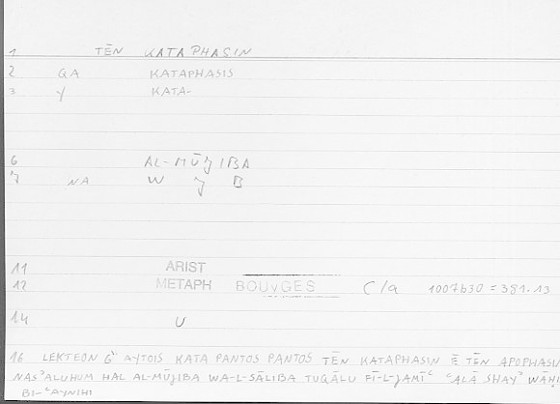 1 TĒN KATAPHASIN
2 GA KATAPHASIS
3 Y KATA-
6 AL-MŪJIBA
7 NA W J B
11 ARIST
12 METAPH BOUYGES C/a 1007b30 = 381.13
14 U
16 LEKTEON AYTOIS KATA PANTOS PANTOS TĒN KATAPHASIN Ē TĒN APOPHASIN
NASʾALUHUM HAL AL-MŪJIBA WA-L-SĀLIBA TUQĀLU FĪ-L-JAMĪʿ ʿALĀ SHAYʾ
BI-ʿAYNIHI